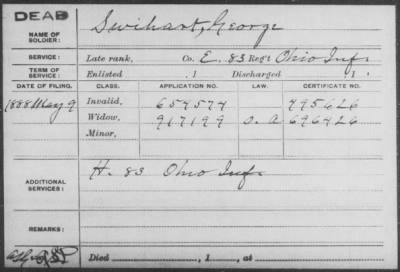 DEAD
NAME OF SOLDIER: Swihart, George
SERVICE: Late rank, Co. E. 83 Reg't Ohio Inf.
TERM OF SERVICE: Enlisted , 1 Discharged , 1
DATE OF FILING. CLASS. APPLICATION NO. LAW. CERTIFICATE NO.
1888 May 9 Invalid, 654574 495626
Widow, 917199 O. A 696426
Minor,
ADDITIONAL SERVICES: H. 83 Ohio Inf.
REMARKS:
Died , 1 , at